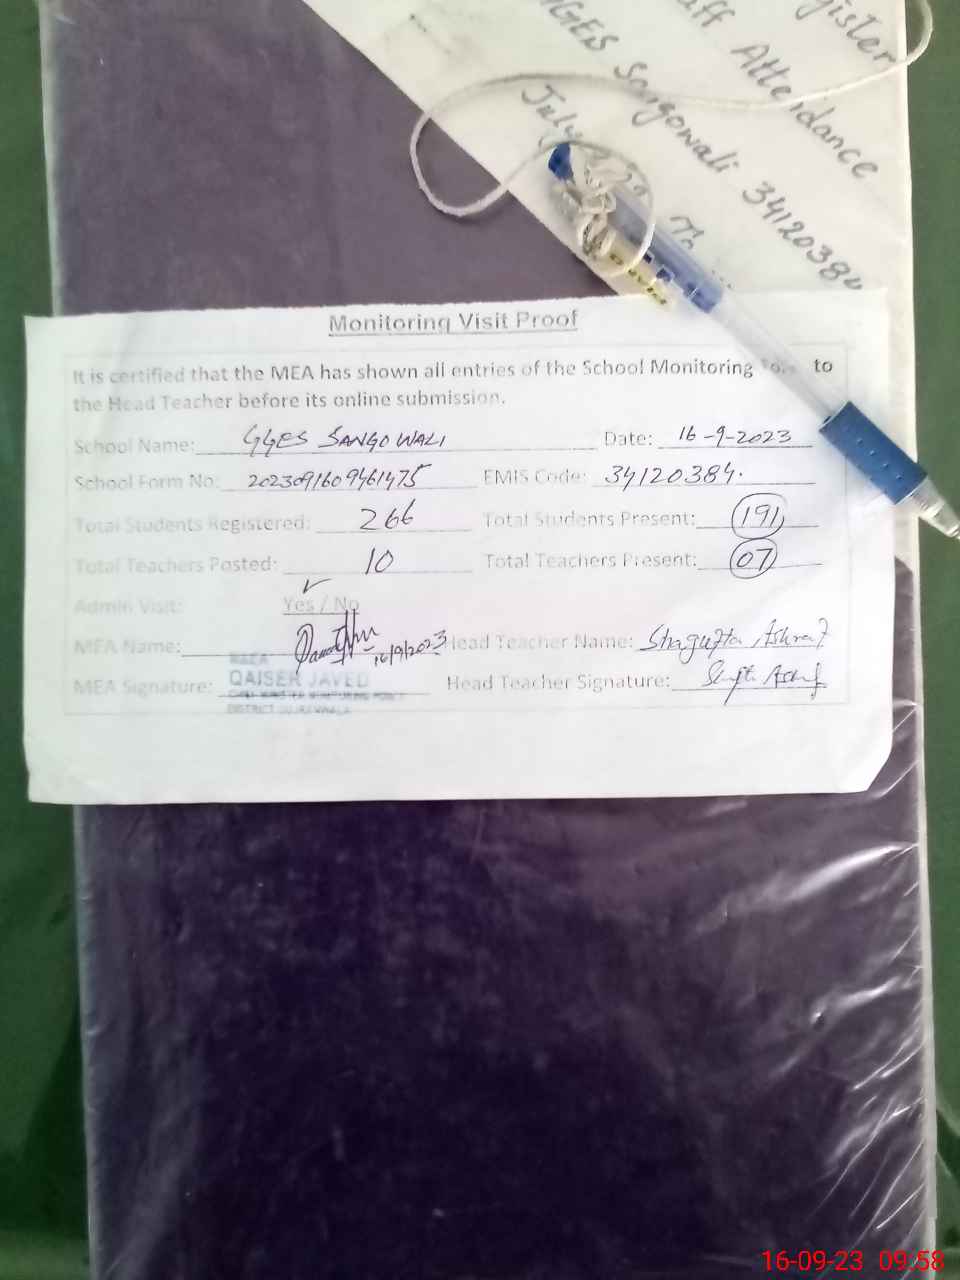 Register
Staff Attendance
GGES Sangowali 34120384
July
To
Monitoring Visit Proof
It is certified that the MEA has shown all entries of the School Monitoring to
the Head Teacher before its online submission.
School Name: GGES SANGOWALI Date: 16-9-2023
School Form No: 2023091609461475 EMIS Code: 34120384.
Total Students Registered: 266 Total Students Present: 191
Total Teachers Posted: 10 Total Teachers Present: 07
Admin Visit: Yes / No
MEA Name: 16/9/2023 Head Teacher Name: Shagufta Ashraf
MEA Signature: QAISER JAVED Head Teacher Signature:
16-09-23 09:58